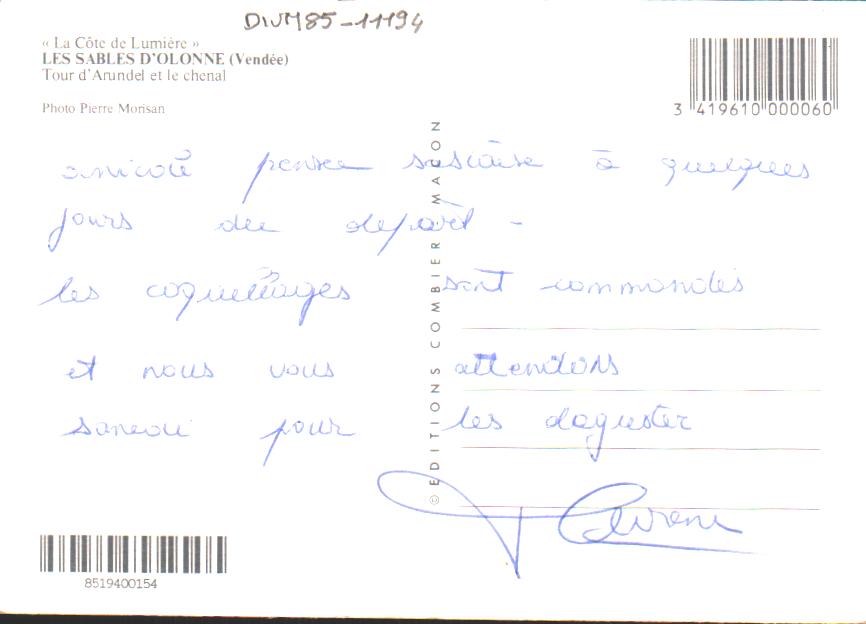 DIVM85-11194
« La Côte de Lumière »
LES SABLES D'OLONNE (Vendée)
Tour d'Arundel et le chenal
Photo Pierre Morisan
3 419610 000060
© EDITIONS COMBIER MACON
amicale pensee à quelques
jours du depart -
les coquillages sont commandés
et nous vous attendons
samedi pour les deguster
8519400154